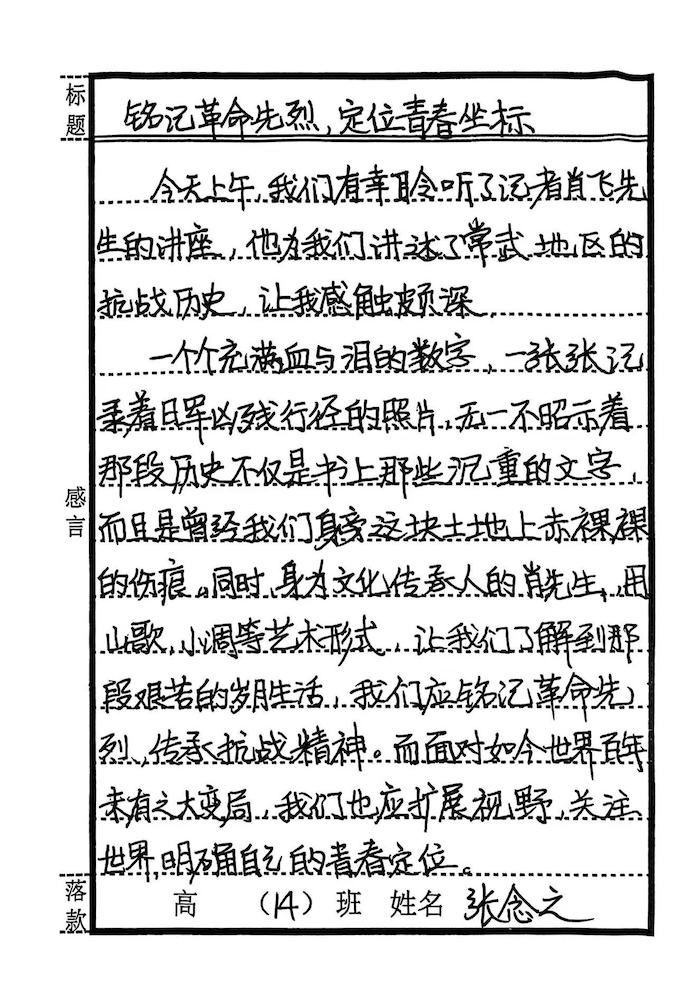 标题
铭记革命先烈，定位青春坐标
今天上午，我们有幸聆听了记者肖飞先
生的讲座，他为我们讲述了常武地区的
抗战历史，让我感触颇深。
一个个充满血与泪的数字，一张张记
录着日军凶残行径的照片，无一不昭示着
那段历史不仅是书上那些沉重的文字，
而且是曾经我们身旁这块土地上赤裸裸
的伤痕。同时，身为文化传承人的肖先生，用
山歌，小调等艺术形式，让我们了解到那
段艰苦的岁月生活，我们应铭记革命先
烈，传承抗战精神。而面对如今世界百年
未有之大变局，我们也应扩展视野，关注
世界，明确自己的青春定位。
感言
落款
高 （14）班 姓名 张念之